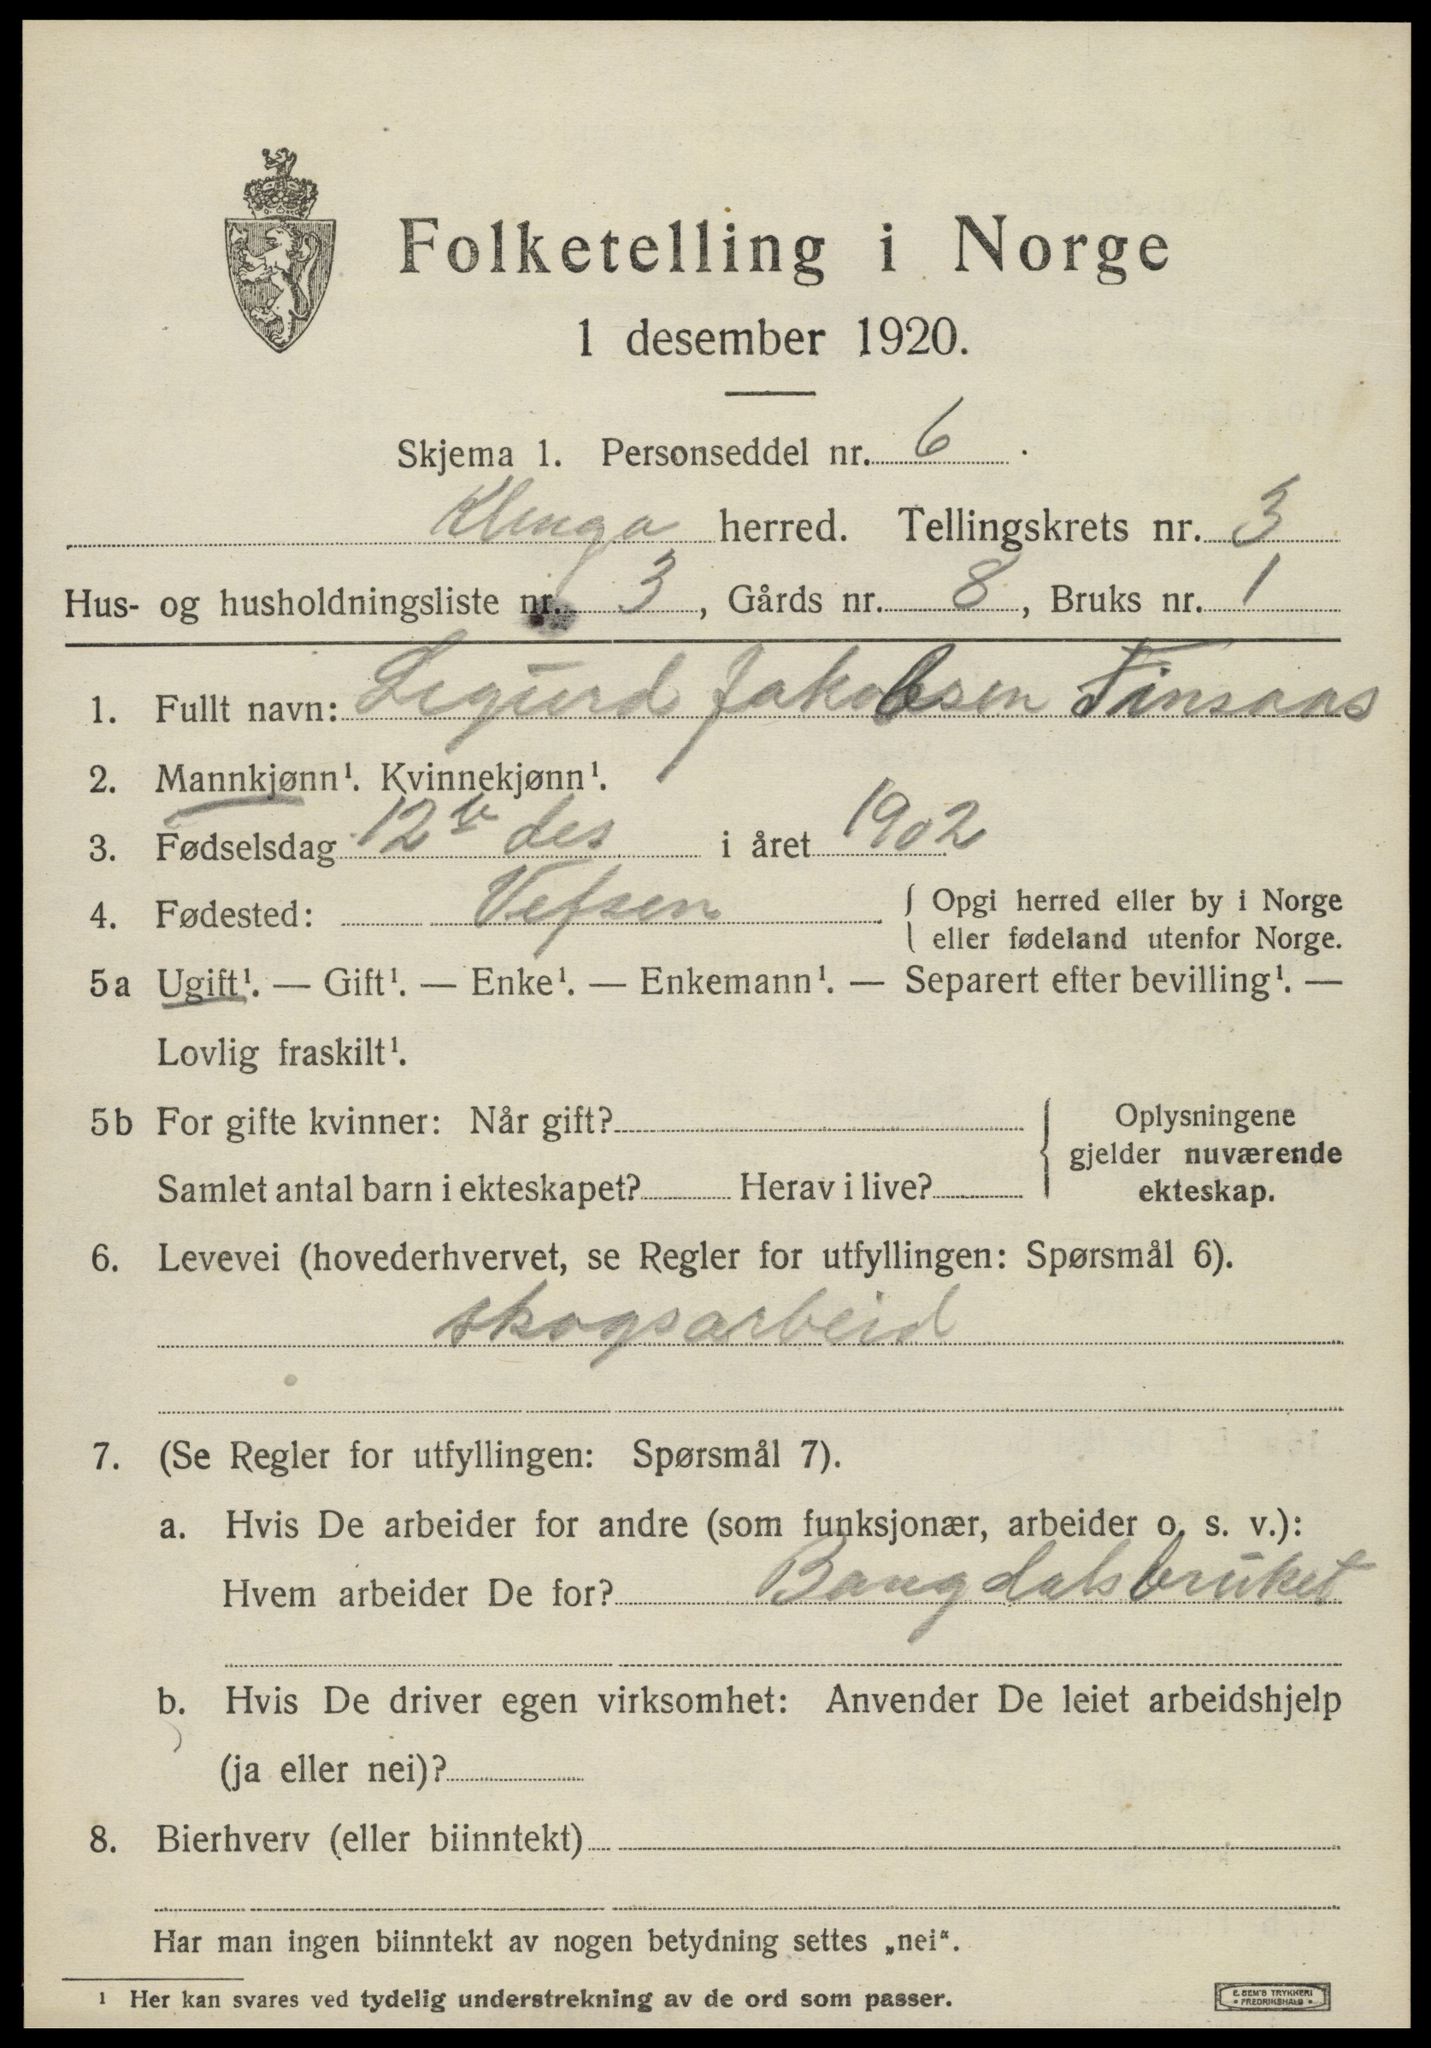 Folketelling i Norge
1 desember 1920.
Skjema 1. Personseddel nr. 6.
Klinga herred. Tellingskrets nr. 3
Hus- og husholdningsliste nr. 3, Gårds nr. 8, Bruks nr. 1
1. Fullt navn: Sigurd Jakobsen Finsaas
2. Mannkjønn¹. Kvinnekjønn¹.
3. Fødselsdag 12te des i året 1902
4. Fødested: Vefsen { Opgi herred eller by i Norge
eller fødeland utenfor Norge.
5a Ugift¹. — Gift¹. — Enke¹. — Enkemann¹. — Separert efter bevilling¹. —
Lovlig fraskilt¹.
5b For gifte kvinner: Når gift? { Oplysningene
gjelder nuværende
Samlet antal barn i ekteskapet? Herav i live? ekteskap.
6. Levevei (hovederhvervet, se Regler for utfyllingen: Spørsmål 6).
skogsarbeid
7. (Se Regler for utfyllingen: Spørsmål 7).
a. Hvis De arbeider for andre (som funksjonær, arbeider o. s. v.):
Hvem arbeider De for? Bangdalsbruket
b. Hvis De driver egen virksomhet: Anvender De leiet arbeidshjelp
(ja eller nei)?
8. Bierhverv (eller biinntekt)
Har man ingen biinntekt av nogen betydning settes „nei“.
¹ Her kan svares ved tydelig understrekning av de ord som passer.
E. SEM'S TRYKKERI
• FREDRIKSHALD •